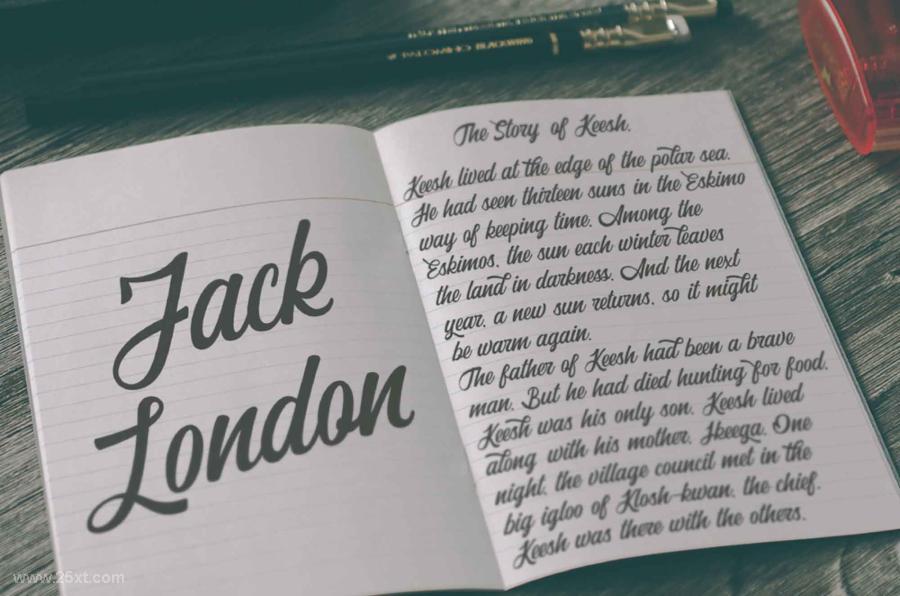 Jack
London
The Story of Keesh.
Keesh lived at the edge of the polar sea.
He had seen thirteen suns in the Eskimo
way of keeping time. Among the
Eskimos, the sun each winter leaves
the land in darkness. And the next
year, a new sun returns, so it might
be warm again.
The father of Keesh had been a brave
man. But he had died hunting for food.
Keesh was his only son. Keesh lived
along with his mother, Ikeega. One
night, the village council met in the
big igloo of Klosh-kwan, the chief.
Keesh was there with the others.
www.25xt.com